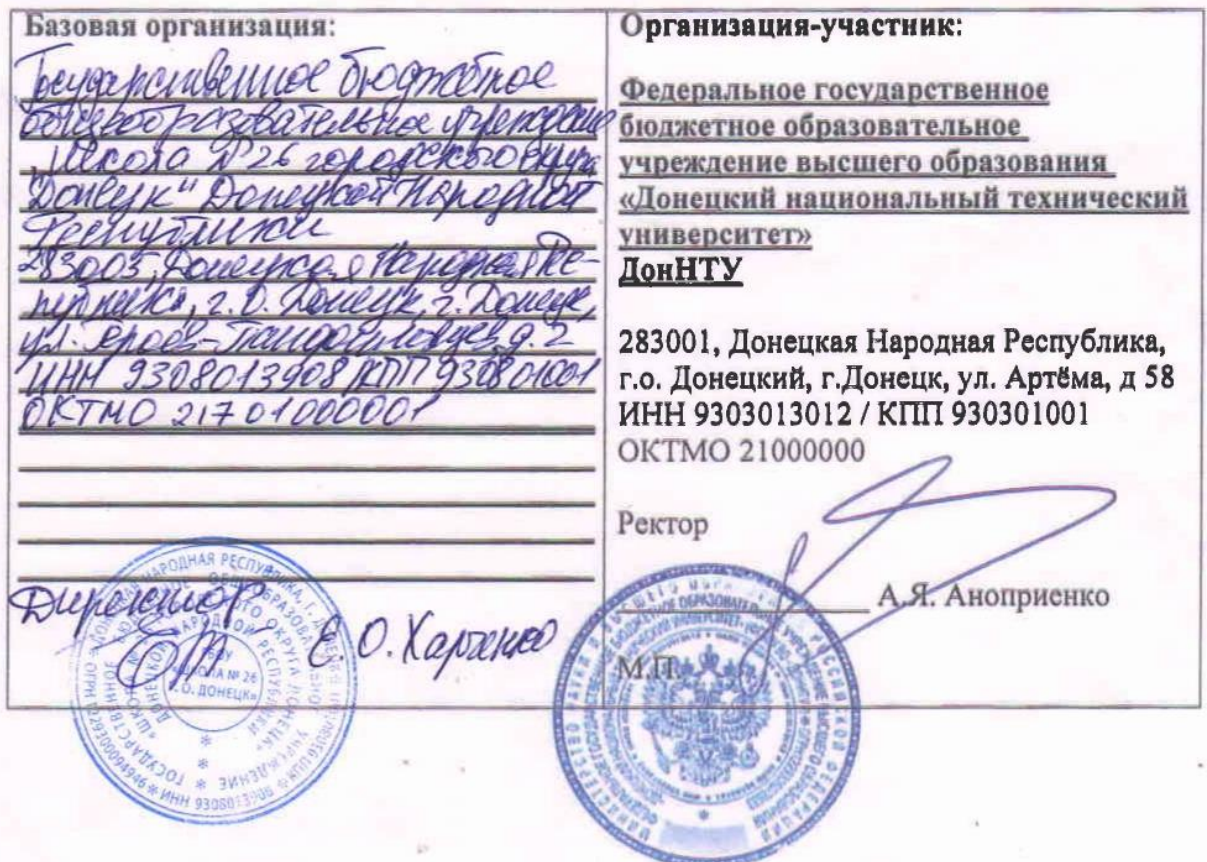 Базовая организация:
Государственное бюджетное
общеобразовательное учреждение
"Школа №26 городского округа
Донецк" Донецкой Народной
Республики
283005, Донецкая Народная Рес-
публика, г.о. Донецк, г. Донецк,
ул. Героев-Панфиловцев, д. 2
ИНН 9308013908 КПП 930801001
ОКТМО 21701000001
Директор
Е.О. Харченко
ГБОУ
«ШКОЛА № 26
Г.О. ДОНЕЦК»
Организация-участник:
Федеральное государственное
бюджетное образовательное
учреждение высшего образования
«Донецкий национальный технический
университет»
ДонНТУ
283001, Донецкая Народная Республика,
г.о. Донецкий, г.Донецк, ул. Артёма, д 58
ИНН 9303013012 / КПП 930301001
ОКТМО 21000000
Ректор
А.Я. Аноприенко
М.П.